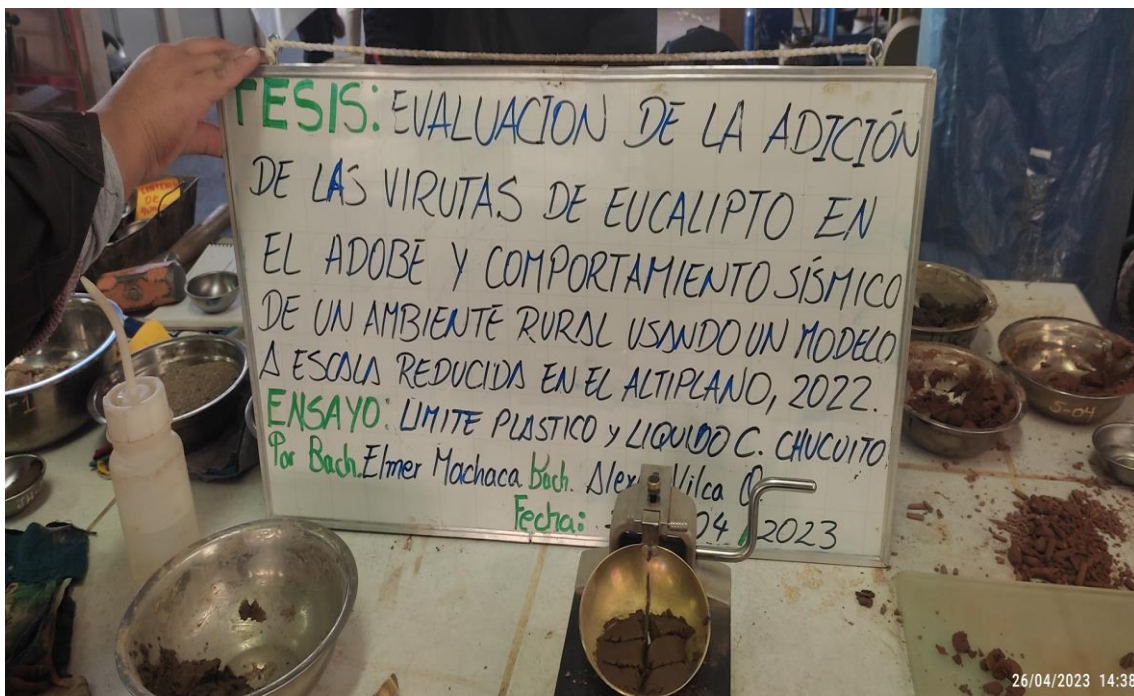 TESIS: EVALUACION DE LA ADICIÓN
DE LAS VIRUTAS DE EUCALIPTO EN
EL ADOBE Y COMPORTAMIENTO SÍSMICO
DE UN AMBIENTE RURAL USANDO UN MODELO
A ESCALA REDUCIDA EN EL ALTIPLANO, 2022.
ENSAYO: LIMITE PLASTICO Y LIQUIDO C. CHUCUITO
Por Bach. Elmer Machaca Bach. Vilca
Fecha: 04 / 2023
S-04
26/04/2023 14:38